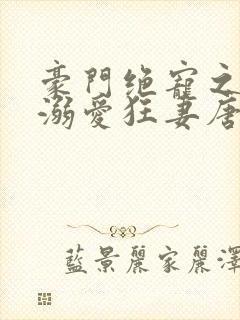 豪門绝寵之
溺愛狂妻唐
藍景麗家麗澤